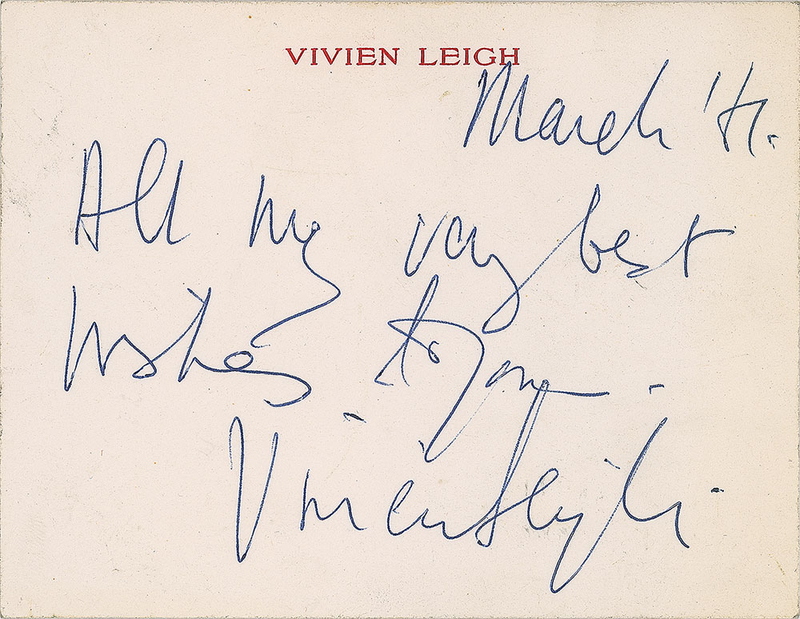 VIVIEN LEIGH
March
All my very best
wishes to you.
Vivien Leigh.